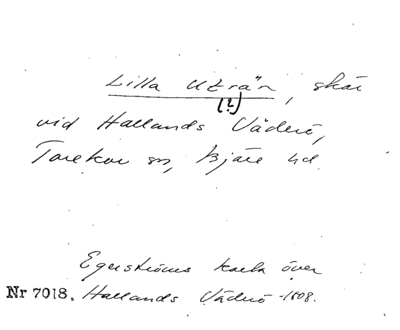 Lilla Uträn, skär
(?)
vid Hallands Väderö,
Torekov sn, Bjäre hd.
Egerströms karta över
Nr 7018. Hallands Väderö 1808.